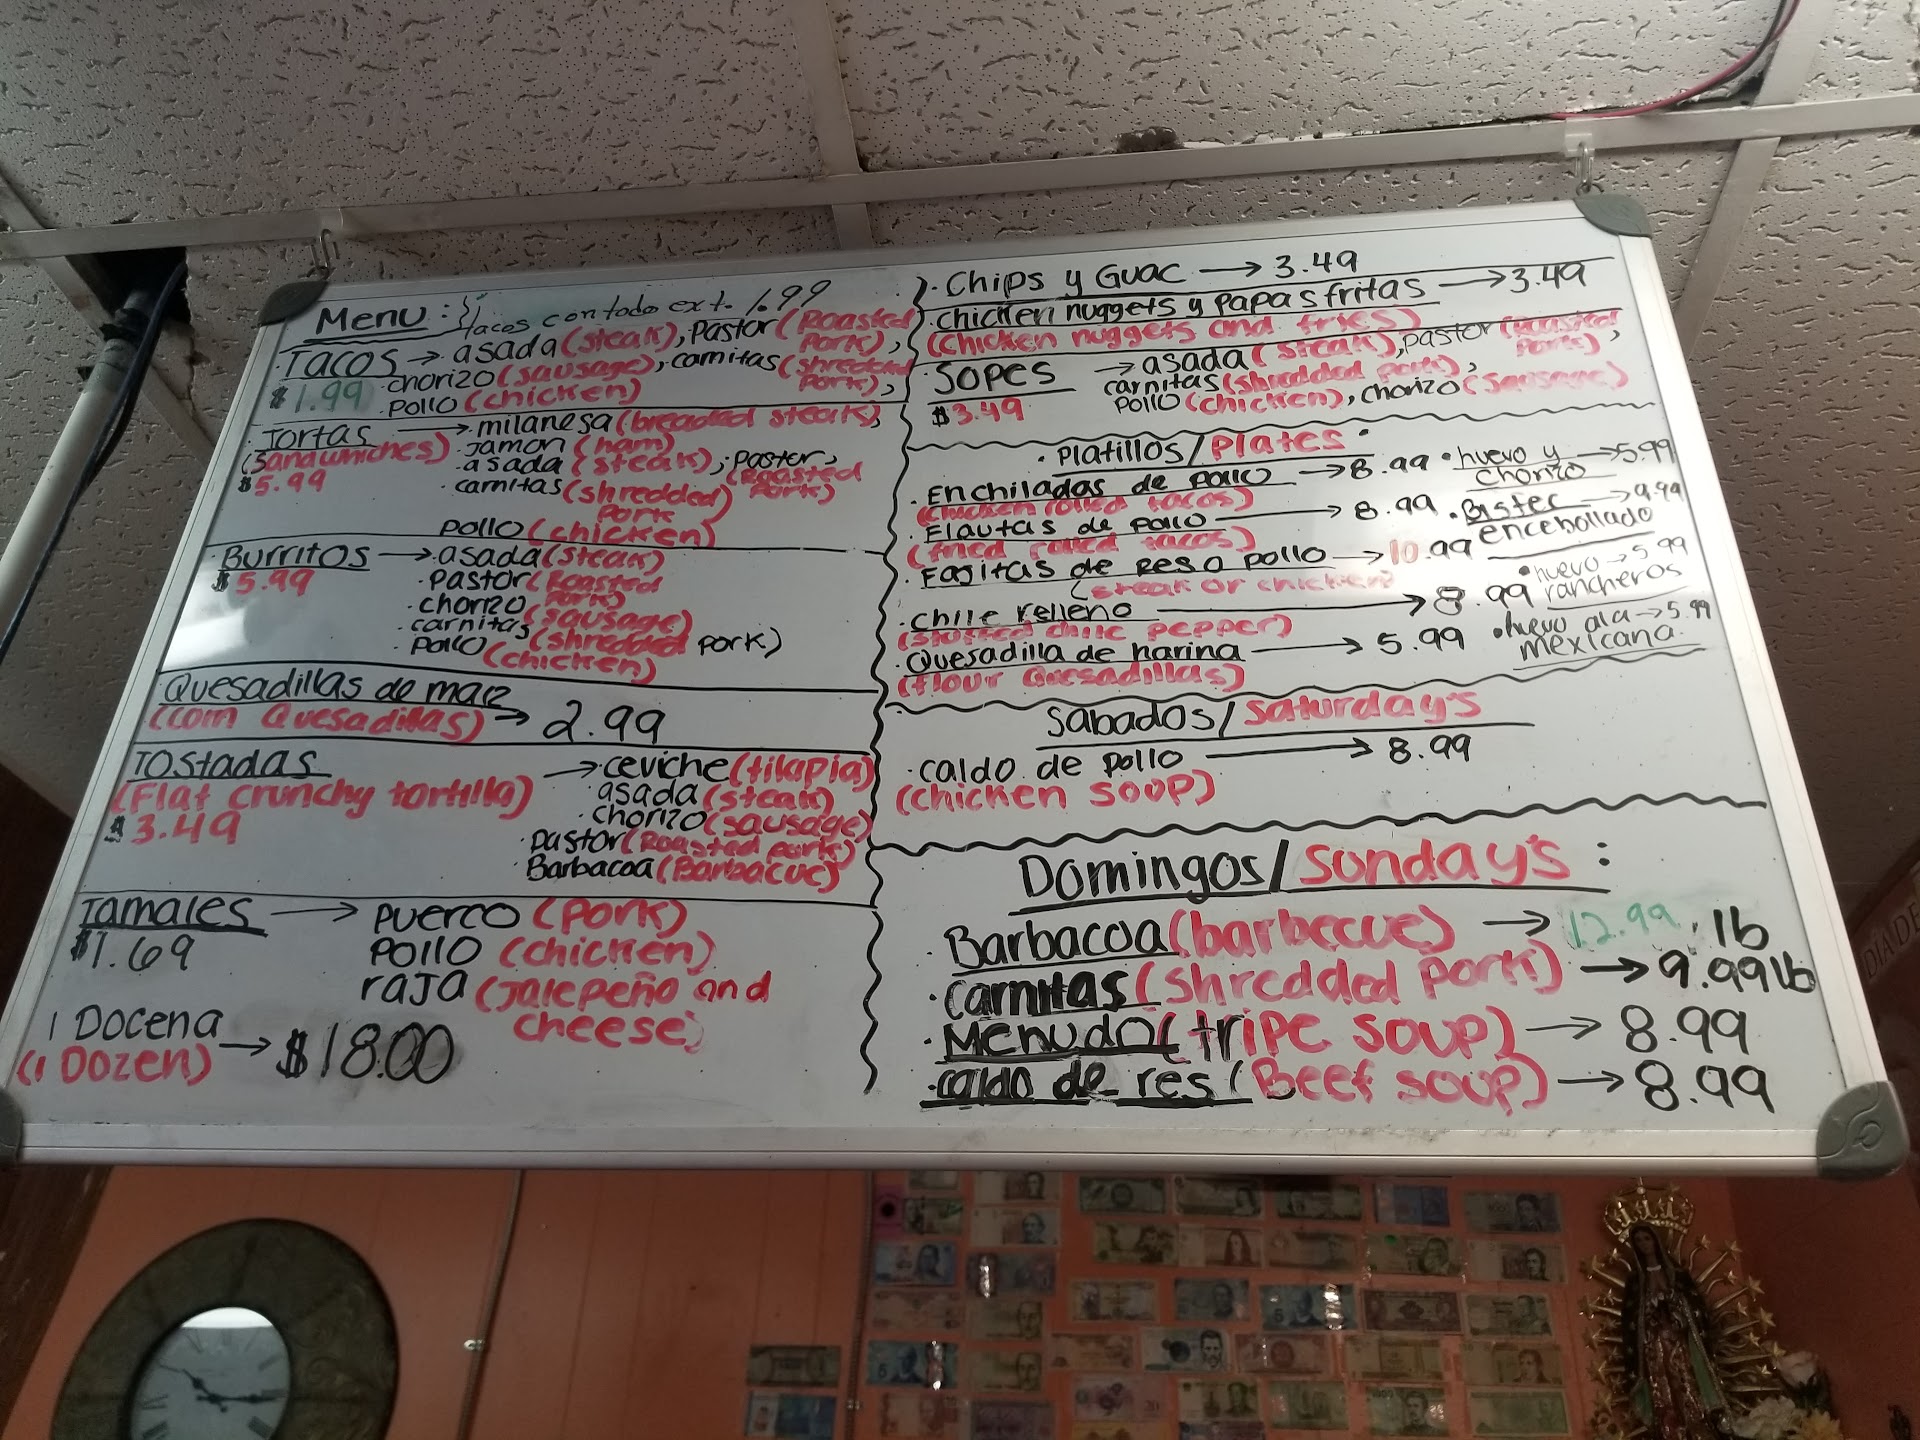 Menu: tacos con todo ext. 1.99
Tacos → asada (steak), Pastor (Roasted Pork),
$1.99 . chorizo (sausage), carnitas (shredded Pork),
. pollo (chicken)
. Tortas → milanesa (breaded steak),
(Sandwhiches) . Jamon (ham)
$5.99 . asada (steak), Pastor, (Roasted Pork)
. carnitas (shredded Pork)
pollo (chicken)
. Burritos → . asada (steak)
$5.99 . Pastor (Roasted Pork)
. chorizo (sausage)
. carnitas (shredded pork)
. pollo (chicken)
. Quesadillas de maiz
(corn Quesadillas) → 2.99
. Tostadas → . ceviche (tilapia)
(Flat crunchy tortilla) . asada (steak)
$3.49 . chorizo (sausage)
. pastor (Roasted pork)
. Barbacoa (Barbacue)
. Tamales → puerco (pork)
$1.69 pollo (chicken)
raja (Jalepeño and cheese)
1 Docena → $18.00
(1 Dozen)
. Chips y Guac → 3.49
. chicken nuggets y papas fritas → 3.49
(chicken nuggets and fries)
. Sopes → asada (steak), pastor (Roasted Pork),
$3.49 carnitas (shredded pork),
pollo (chicken), chorizo (sausage)
. Platillos/Plates:
. Enchiladas de pollo → 8.99
(chicken rolled tacos)
. Flautas de pollo → 8.99
(fried rolled tacos)
. Fajitas de res o pollo → 10.99
(steak or chicken)
. chile relleno → 8.99
(stuffed chile pepper)
. Quesadilla de harina → 5.99
(flour Quesadillas)
. huevo y chorizo → 5.99
. Bistec encebollado → 9.99
. huevo rancheros → 5.99
. huevo ala mexicana → 5.99
Sabados/Saturday's
. caldo de pollo → 8.99
(chicken soup)
Domingos/Sunday's:
. Barbacoa (barbecue) → 12.99 lb
. carnitas (shredded pork) → 9.99 lb
. Menudo (tripe soup) → 8.99
. caldo de res (Beef soup) → 8.99
DIA DE